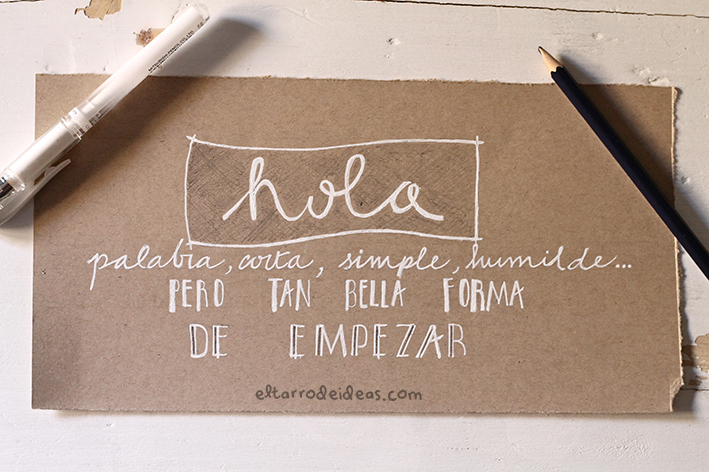 hola
palabra, corta, simple, humilde...
PERO TAN BELLA FORMA
DE EMPEZAR
eltarrodeideas.com